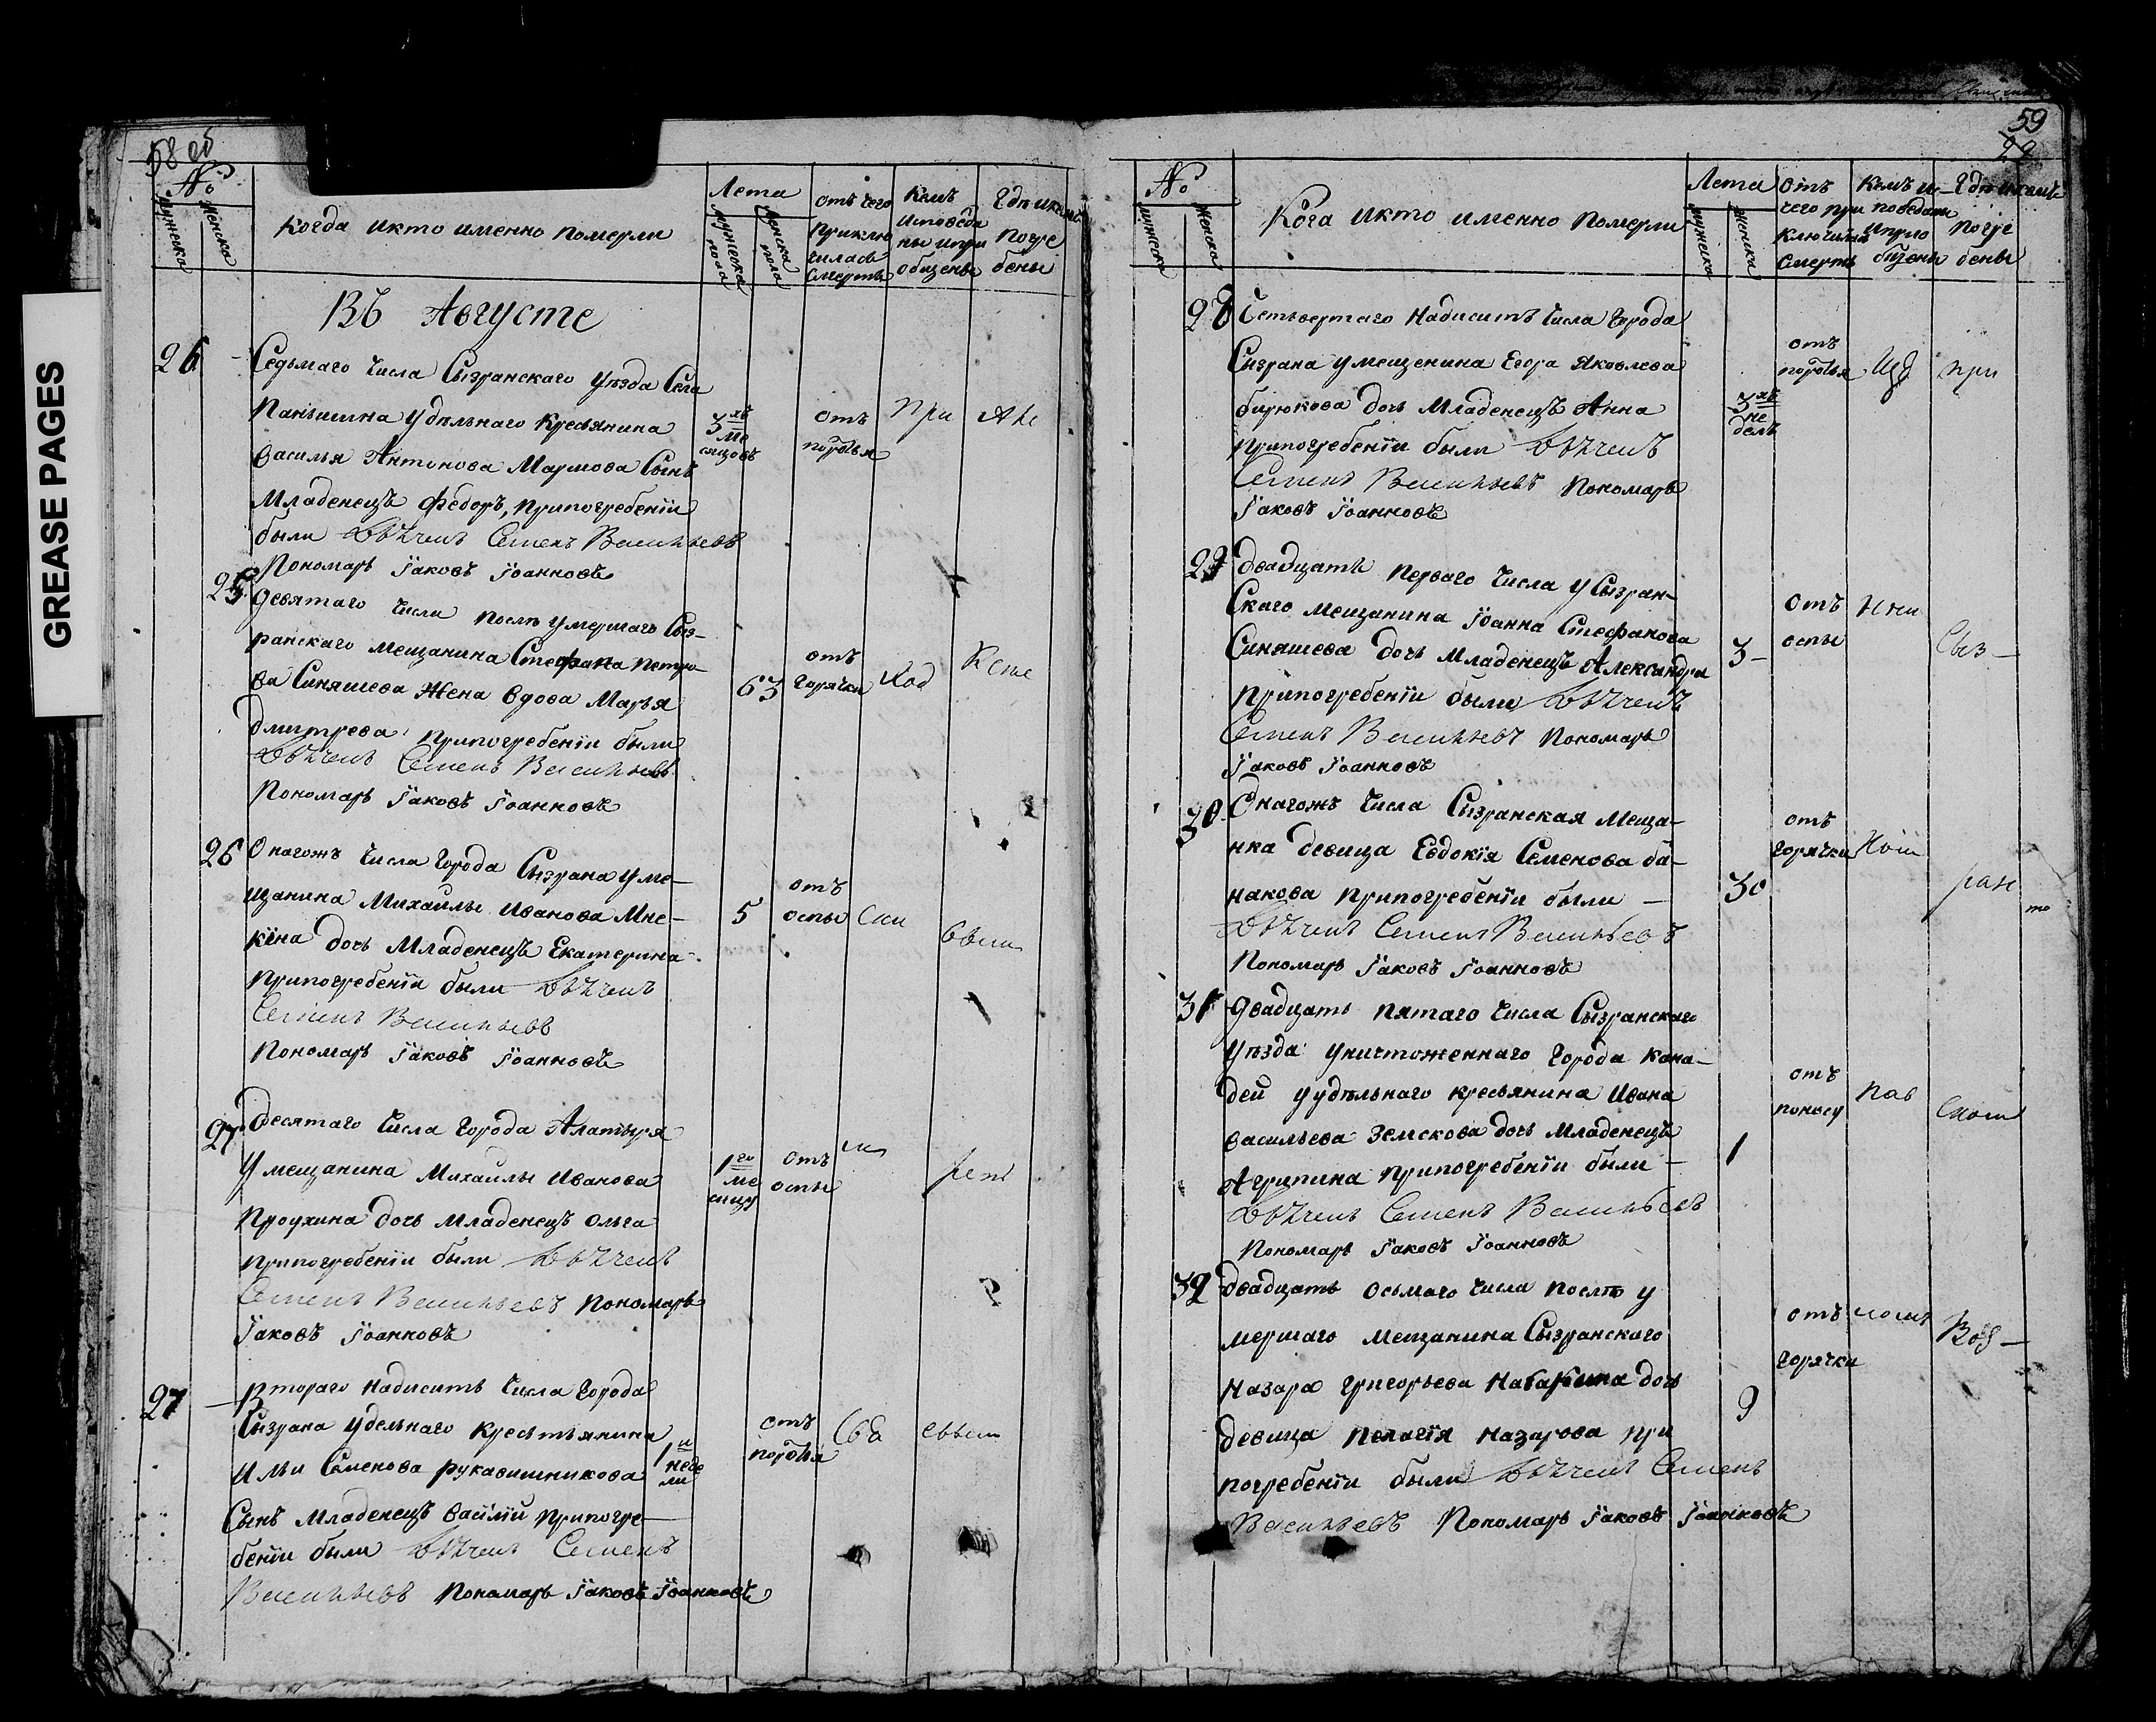 GREASE PAGES
58 об
№
мужеска
женска
Когда и кто именно померли
Лета
мужеска пола
женска пола
отъ чего приклю чилась смерть
Кемъ исповеда ны и при общены
Где и кемъ погре бены
Въ Августе
26
Седьмаго числа Сызранскаго уѣзда Села
Паньшина удѣльнаго крестьянина
Василья Антонова Сынъ
Младенецъ Федоръ, при погребенїи
были Дьячекъ Семенъ Васильевъ
Пономарь Їаковъ Їоанновъ
3 хъ ме сяцовъ
отъ
при
25
Девятаго числа послѣ умершаго Сыз-
ранскаго мещанина Стефана Петро-
ва Синяшева Жена вдова Марья
Дмитрева при погребенїи были
Дьячекъ Семенъ Васильевъ
Пономарь Їаковъ Їоанновъ
63
отъ горячки
26
Онагожъ числа города Сызрана у ме-
щанина Михайлы Иванова Мне-
кїна дочь Младенецъ Екатерина
при погребенїи были Дьячекъ
Семенъ Васильевъ
Пономарь Їаковъ Їоанновъ
5
отъ оспы
27
Десятаго числа города Алатыря
У мещанина Михайлы Иванова
Проухина дочь младенецъ Ольга
при погребенїи были Дьячекъ
Семенъ Васильевъ Пономарь
Їаковъ Їоанновъ
1 го ме сицу
отъ оспы
27
Втораго надисить числа города
Сызрана удельнаго крестьянина
Ильи Семенова рукавишникова
Сынъ Младенецъ Василїй при погре-
бенїи были Дьячекъ Семенъ
Васильевъ Пономарь Їаковъ Їоанновъ
1 и неде ли
отъ
59
№
мужеска
женска
Кога и кто именно померли
Лета
мужеска
женска
отъ чего при ключилась смерть
Кемъ ис поведаны и прио бщены
Где и кемъ погре бены
28
Четвертаго надисить числа города
Сызрана у мещенина Егора Яковлева
бирюкова дочь Младенецъ Анна
при погребенїи были Дьячекъ
Семенъ Васильевъ Пономарь
Їаковъ Їоанновъ
3 хъ не дель
отъ
при
29
двадцать перваго числа у Сызран-
скаго мещанина Їоанна Стефанова
Синяшева дочь Младенецъ Александра
при погребенїи были Дьячекъ
Семенъ Васильевъ Пономарь
Їаковъ Їоанновъ
3-
отъ оспы
Сыз-
30
Онагожъ числа Сызранская меща-
нка девица Евдокїя Семенова ба-
накова при погребенїи были -
Дьячекъ Семенъ Васильевъ
Пономарь Їаковъ Їоанновъ
30
отъ горячки
ран
31
двадцать пятаго числа Сызранскаго
уѣзда уничтоженнаго города Кана-
дей у удѣльнаго крестьянина Ивана
Васильева Земскова дочь Младенецъ
Агрипина при погребенїи были -
Дьячекъ Семенъ Васильевъ
Пономарь Їаковъ Їоанновъ
1
отъ поносу
32
двадцать осьмаго числа послѣ у
мершаго мещанина Сызранскаго
Назара Григорьева дочь
девица Пелагїя Назарова при
погребенїи были Дьячекъ Семенъ
Васильевъ Пономарь Їаковъ Їоанновъ
9
отъ горячки